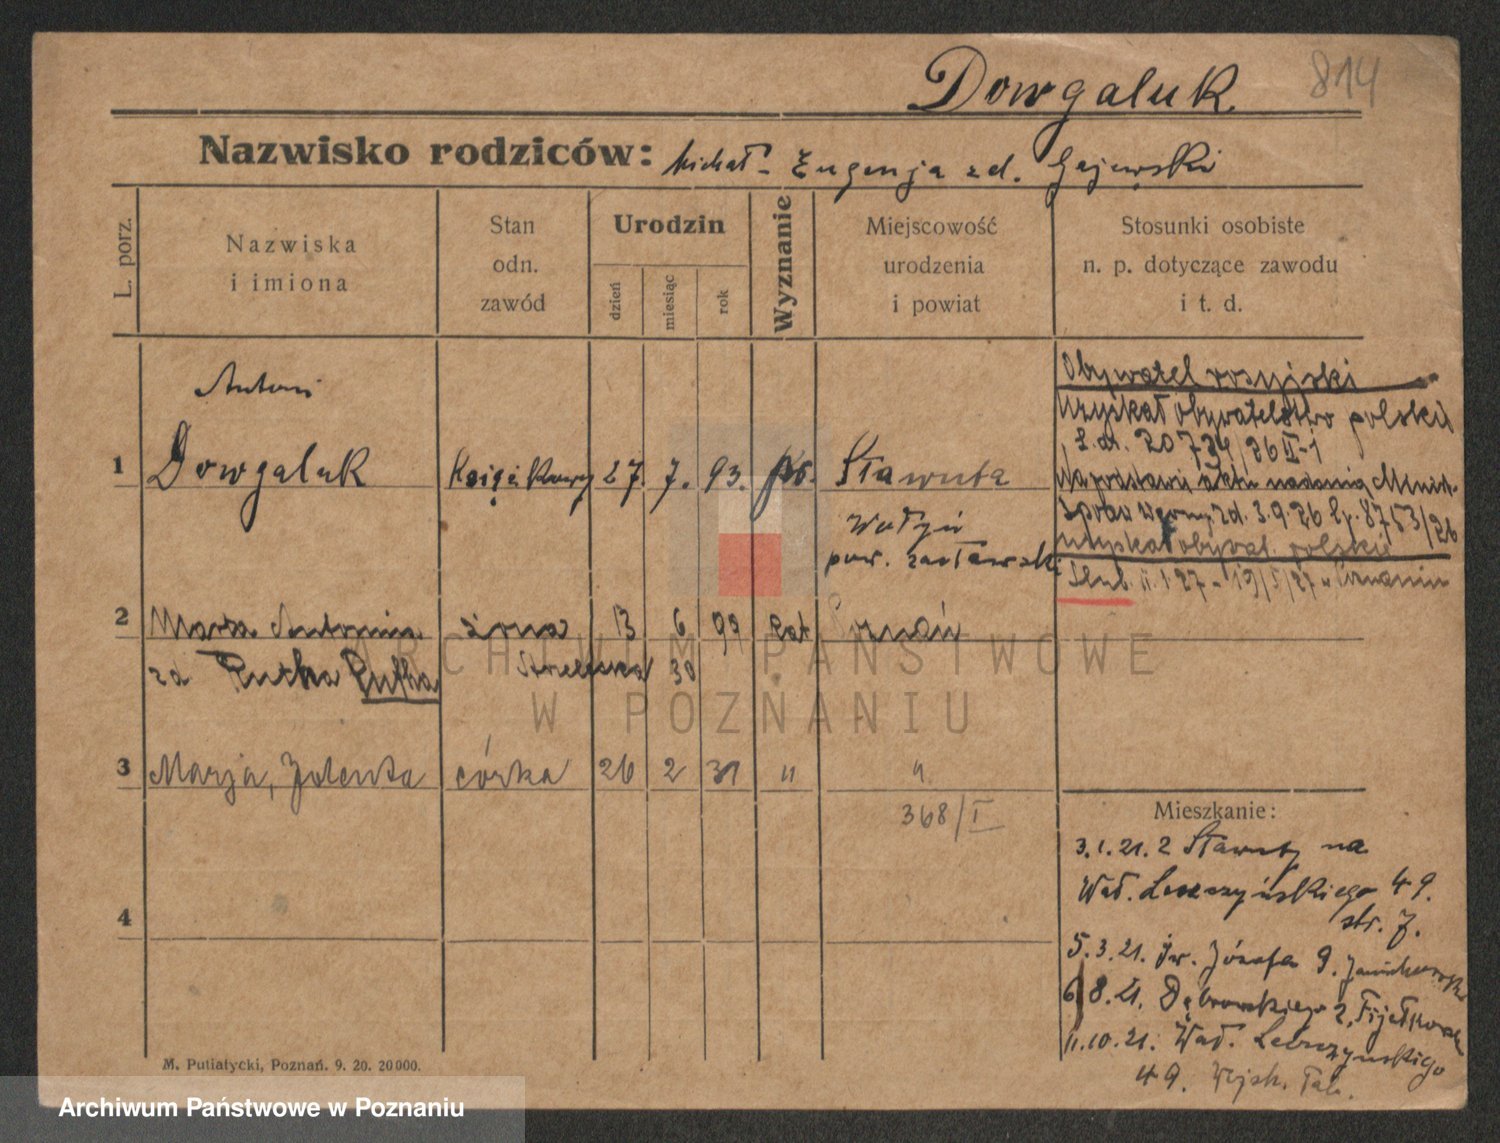 Dowgaluk
814
Nazwisko rodziców: Michał - Eugenja zd. Gajewski
L. porz.
Nazwiska i imiona
Stan odn. zawód
Urodzin
dzień
miesiąc
rok
Wyznanie
Miejscowość urodzenia i powiat
Stosunki osobiste n. p. dotyczące zawodu i t. d.
1 Antoni Dowgaluk Księgikowy 27. 7. 93. Sławuta
Wołyń
pow. zasławski
Obywatel rosyjski
Uzyskał obywatelstwo polskie
20 734/36 II-1
Na podstawie aktu nadania Minist.
Spraw Wewn. zd. 3.9.26 8753/26
uzyskał obywat. polskie
Ślub 19/5/27 w Poznaniu
2 Marja Antonina żona 13 6 99 kat Poznań
zd Putka Pufka Strzelecka 30
3 Marja, Jolenta córka 26 2 31 " "
368/I
4
Mieszkanie:
3.1.21. z Sławuty na
Wał. Leszczyńskiego 49.
str. 7.
5.3.21. Św. Józefa 9.
6/8.21. Dąbrowskiego 2,
11.10.21. Wał. Leszczyńskiego
49.
M. Putiatycki, Poznań. 9. 20. 20000.
ARCHIWUM PAŃSTWOWE
W POZNANIU
Archiwum Państwowe w Poznaniu